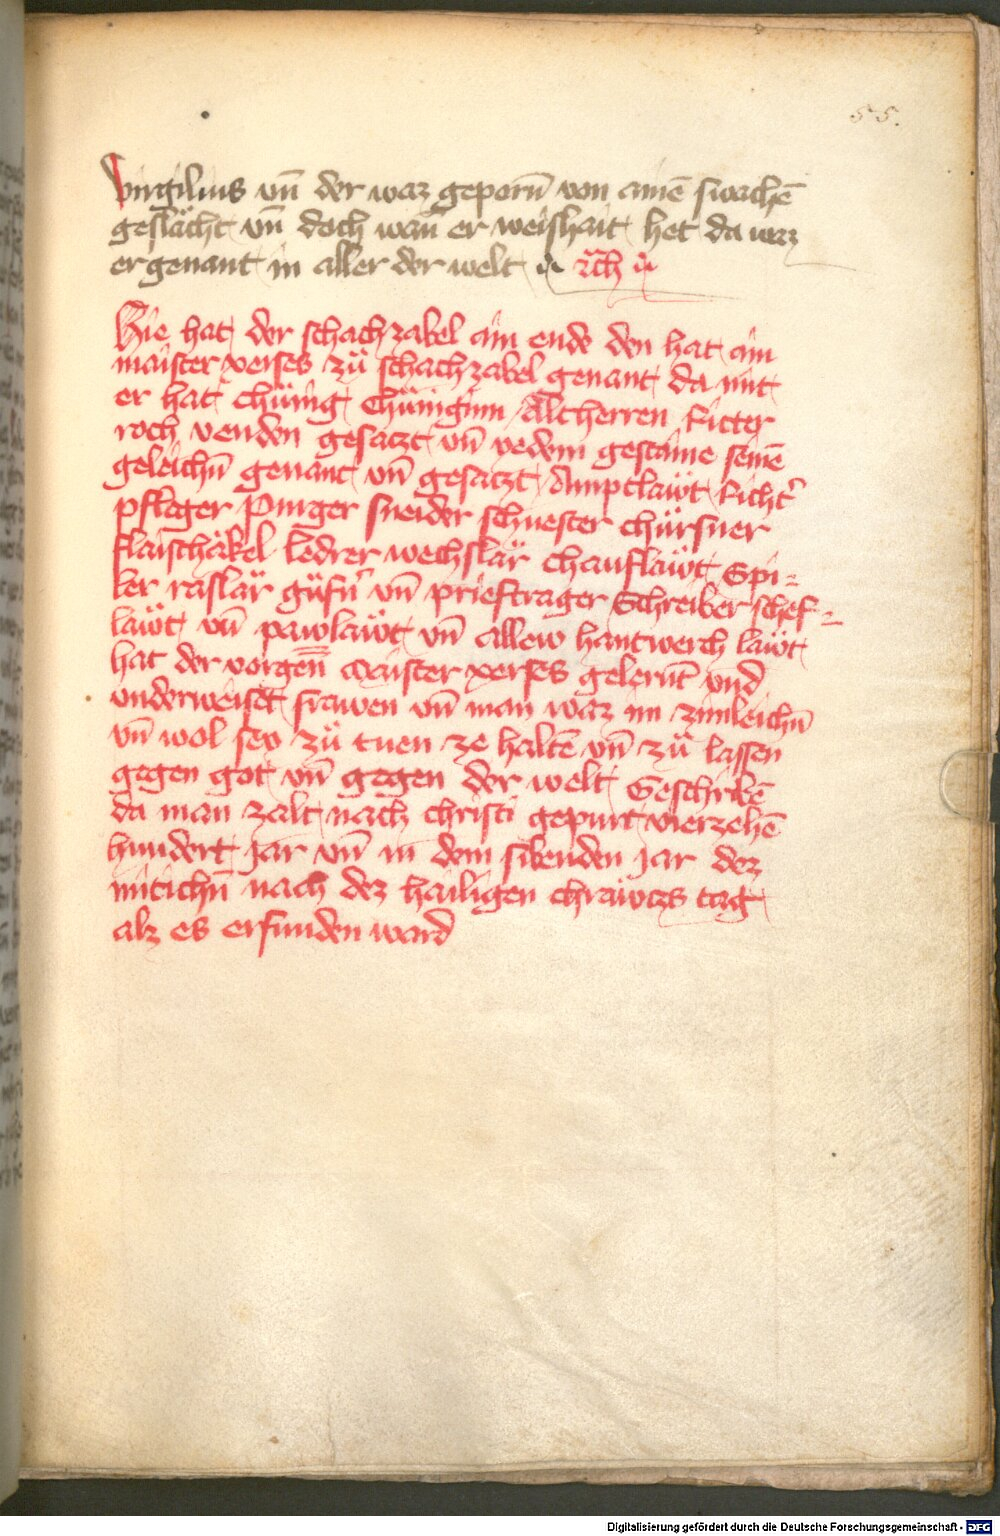 55.
Virgilius vn̄ der waz geporn̄ von ainē swachē
geslächt vn̄ doch wan̄ er weishait het da waz
er genant in aller der welt rc̄h
Hie hat der schachzabel ain ende den hat ain
maister xerses zů schachzabel genant da mit
er hat chünig Chüniginn Altherren Ritter
roch venden gesatzt vn̄ yedem gestaine seinē
geleichn̄ genant vn̄ gesatzt Amptläwt Richtʼ
pflager Purger sneider schuester chürsner
flaischäkel Ledrer wechslär chauflawt Spi=
ler raslär güfn̄ vn̄ prieftrager Schreiber schef=
läwt vn̄ pawläwt vn̄ allew hantwerch läwt
hat der vorgen̄ Maister xerses gelernt̄ vnd
vnderweiset frawen vn̄ man waz im zimleichn̄
vn̄ wol sey zů tuen ze haltē vn̄ zů lassen
gegen got vn̄ gegen der welt Geschribē
da man zalt nach christi gepurt vierzehē
hundert Jar vn̄ in dem sibenden Jar dez
mitichn̄ nach dez hailigen chräwtzs tag
alz es erfunden ward
Digitalisierung gefördert durch die Deutsche Forschungsgemeinschaft - DFG